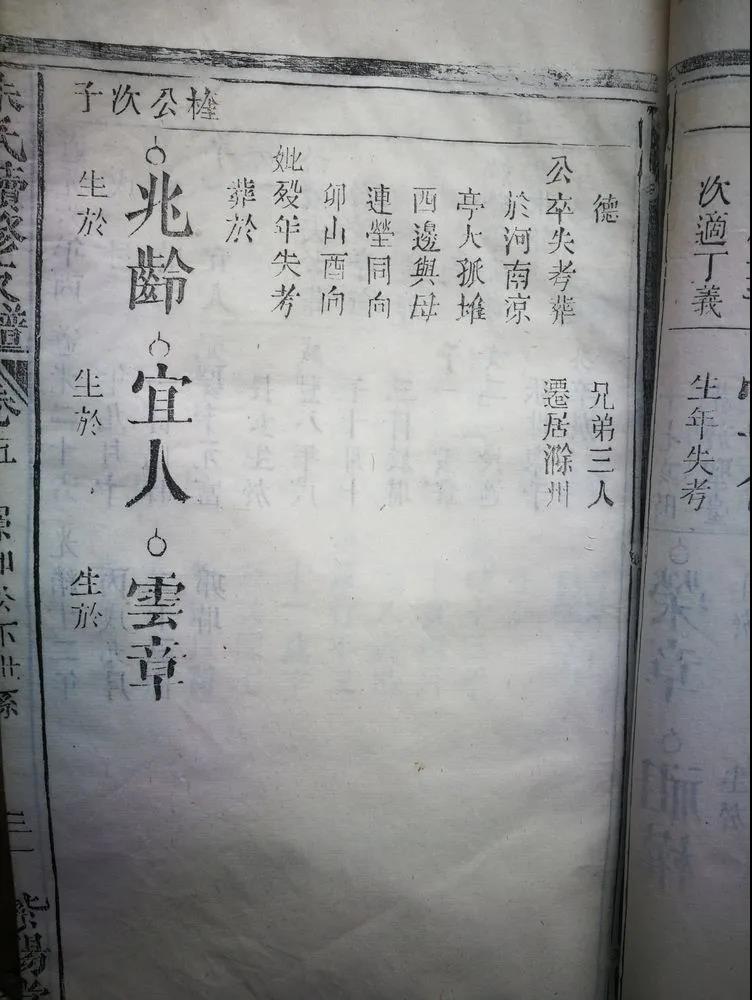 次適丁義
生年失考
德
兄弟三人
公卒失考葬
遷居滁州
於河南凉
亭大孤堆
西邊與母
連塋同向
卯山酉向
妣歿年失考
葬於
權公次子
兆齡
宜人
雲章
生於
生於
生於
朱氏續修支譜
卷五
公下世系
三
紫陽堂